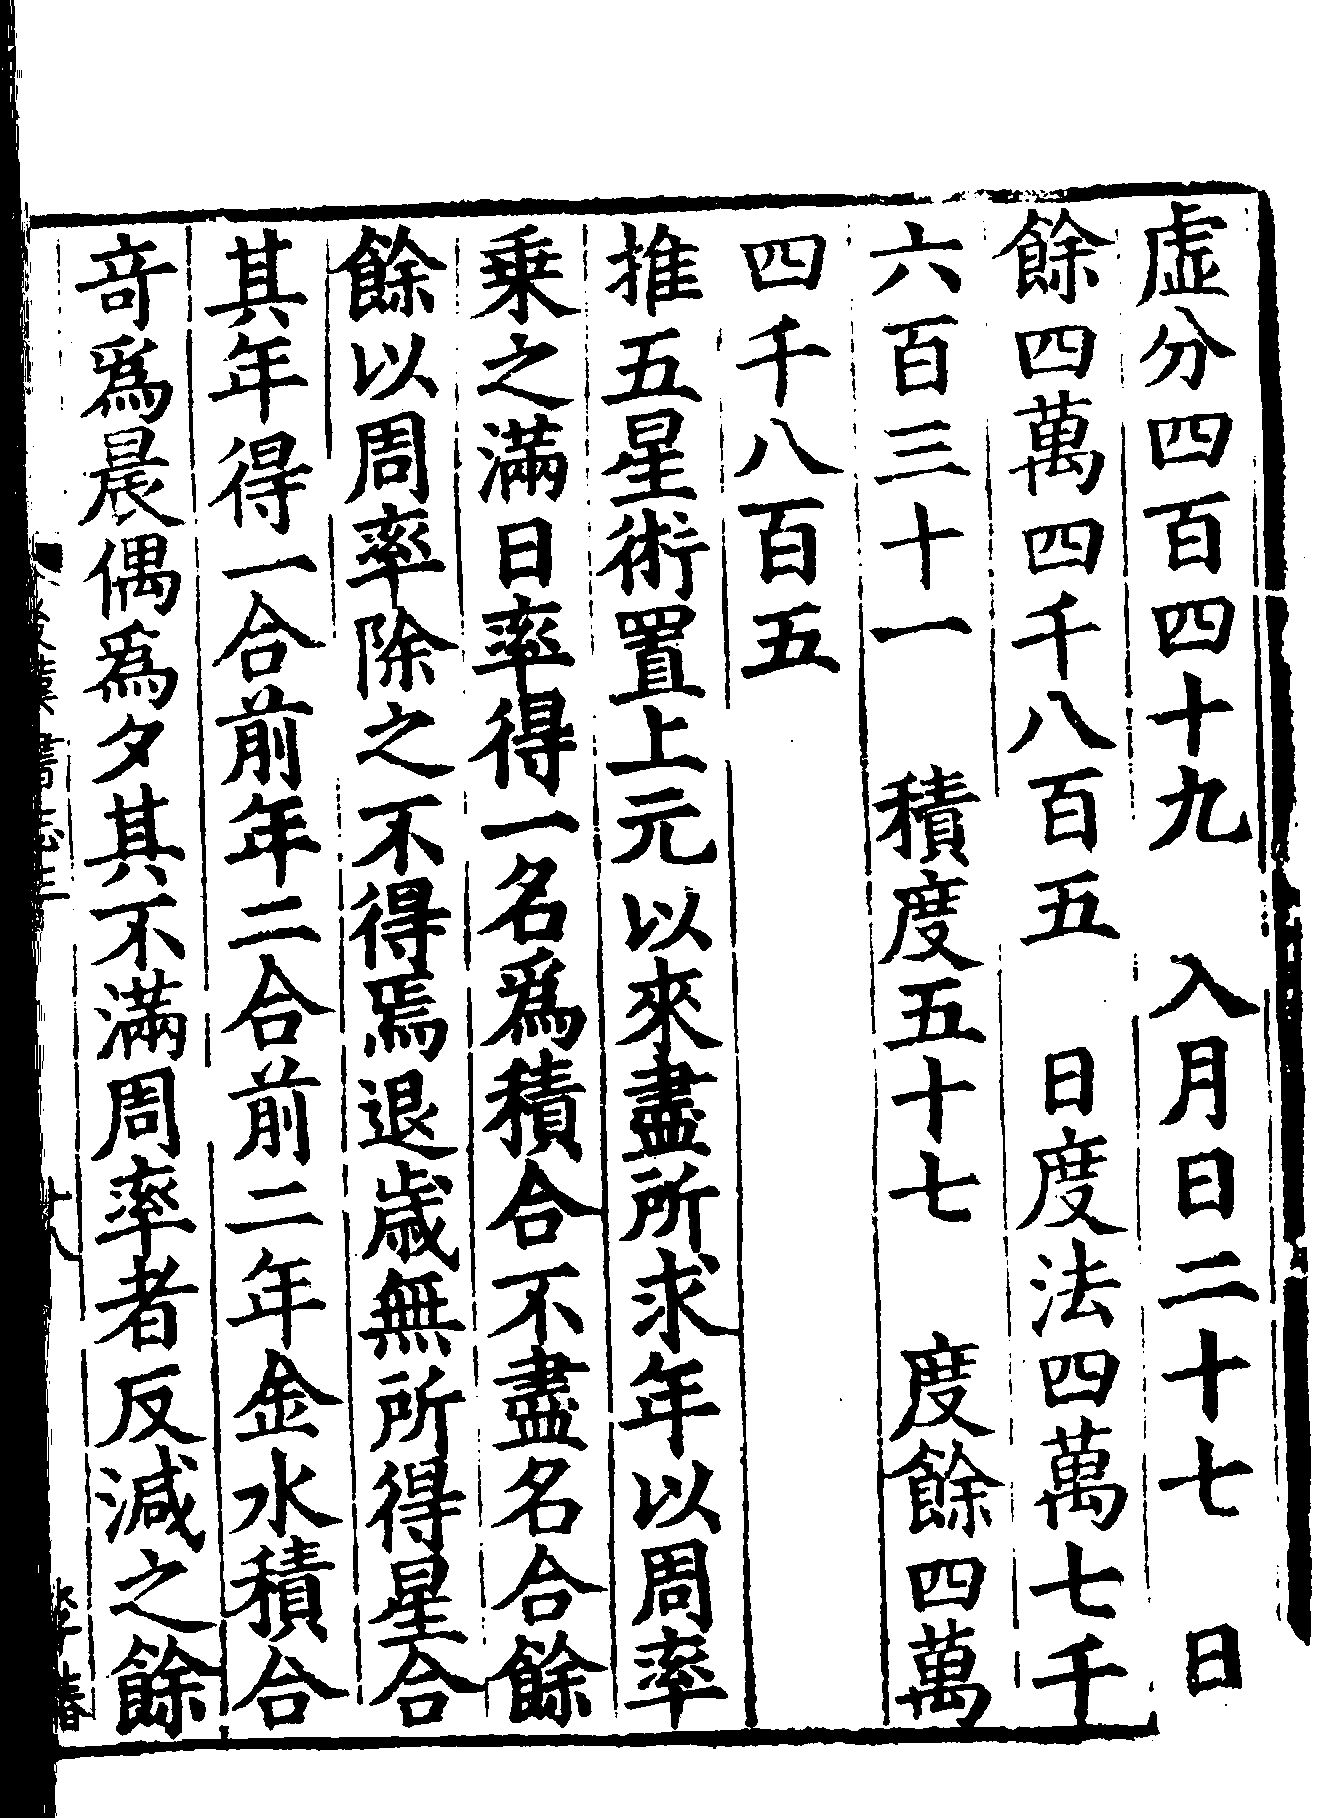 虛分四百四十九　入月日二十七　日
餘四萬四千八百五　日度法四萬七千
六百三十一　積度五十七　度餘四萬
四千八百五
推五星術置上元以來盡所求年以周率
乗之滿日率得一名爲積合不盡名合餘
餘以周率除之不得焉退歲無所得星合
其年得一合前年二合前二年金水積合
竒爲晨偶爲夕其不滿周率者反減之餘